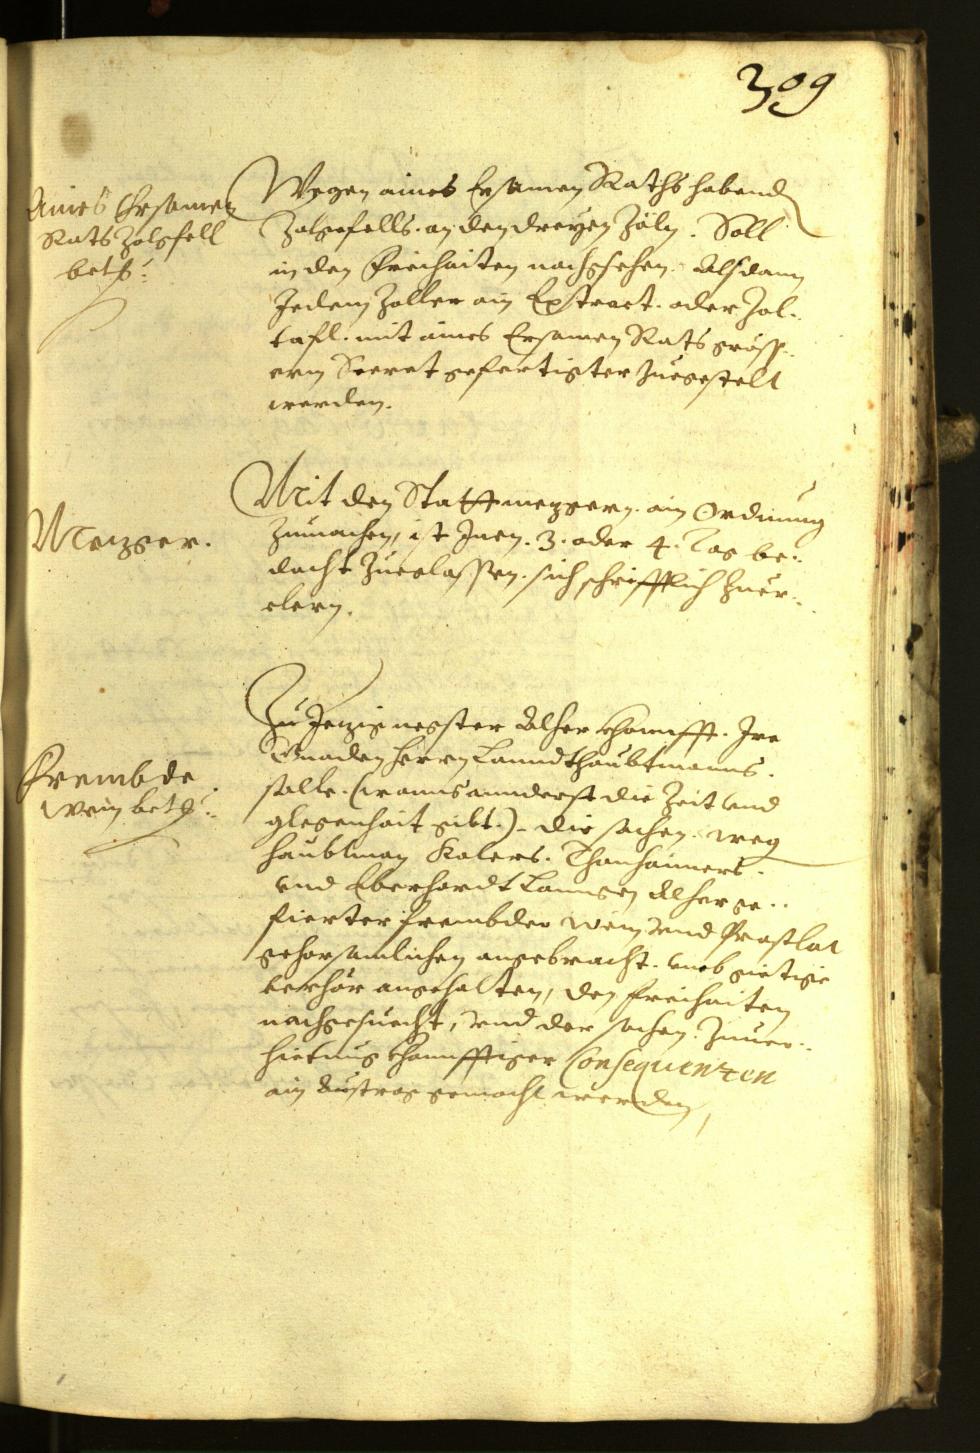 309
Aines Ersamen
Rats Zolgfell
betr:
Wegen aines Ersamen Raths habend
Zolgefells. an den dreyen Zöln. Soll
in den Freihaiten nachgsehen. Alsdann
Jedem Zoller ain Extract. oder Zol-
tafl. mit aines Ersamen Rats gröss-
ern Secret gefertigter Zuegestelt
werden.
Metzger.
Mit den Stattmezgern. ain Ordnung
Zumachen, ist Inen. 3. oder 4. Tag be-
dacht Zuelassen. sich schrifftlich Zuer-
clern.
Frembde
wein betr:
Zu Jezig negster Alher Khonnfft. Ire
Gnaden Herrn Lanndthaubtmanns.
solle. (wanns annderst die Zeit und
glegenhait gibt.) die sachen. weg
haubtman Kolers. Thanhaimers.
und Eberhardt Lanngen Alher ge-
fierter frembder wein und
gehorsamlichen angebracht. umb
verhör angehalten, den freihaiten
nachgesuecht, und der sachen. Zuuer-
hietung khonnfftiger Consequenzen
ain Austrag gemacht werden,